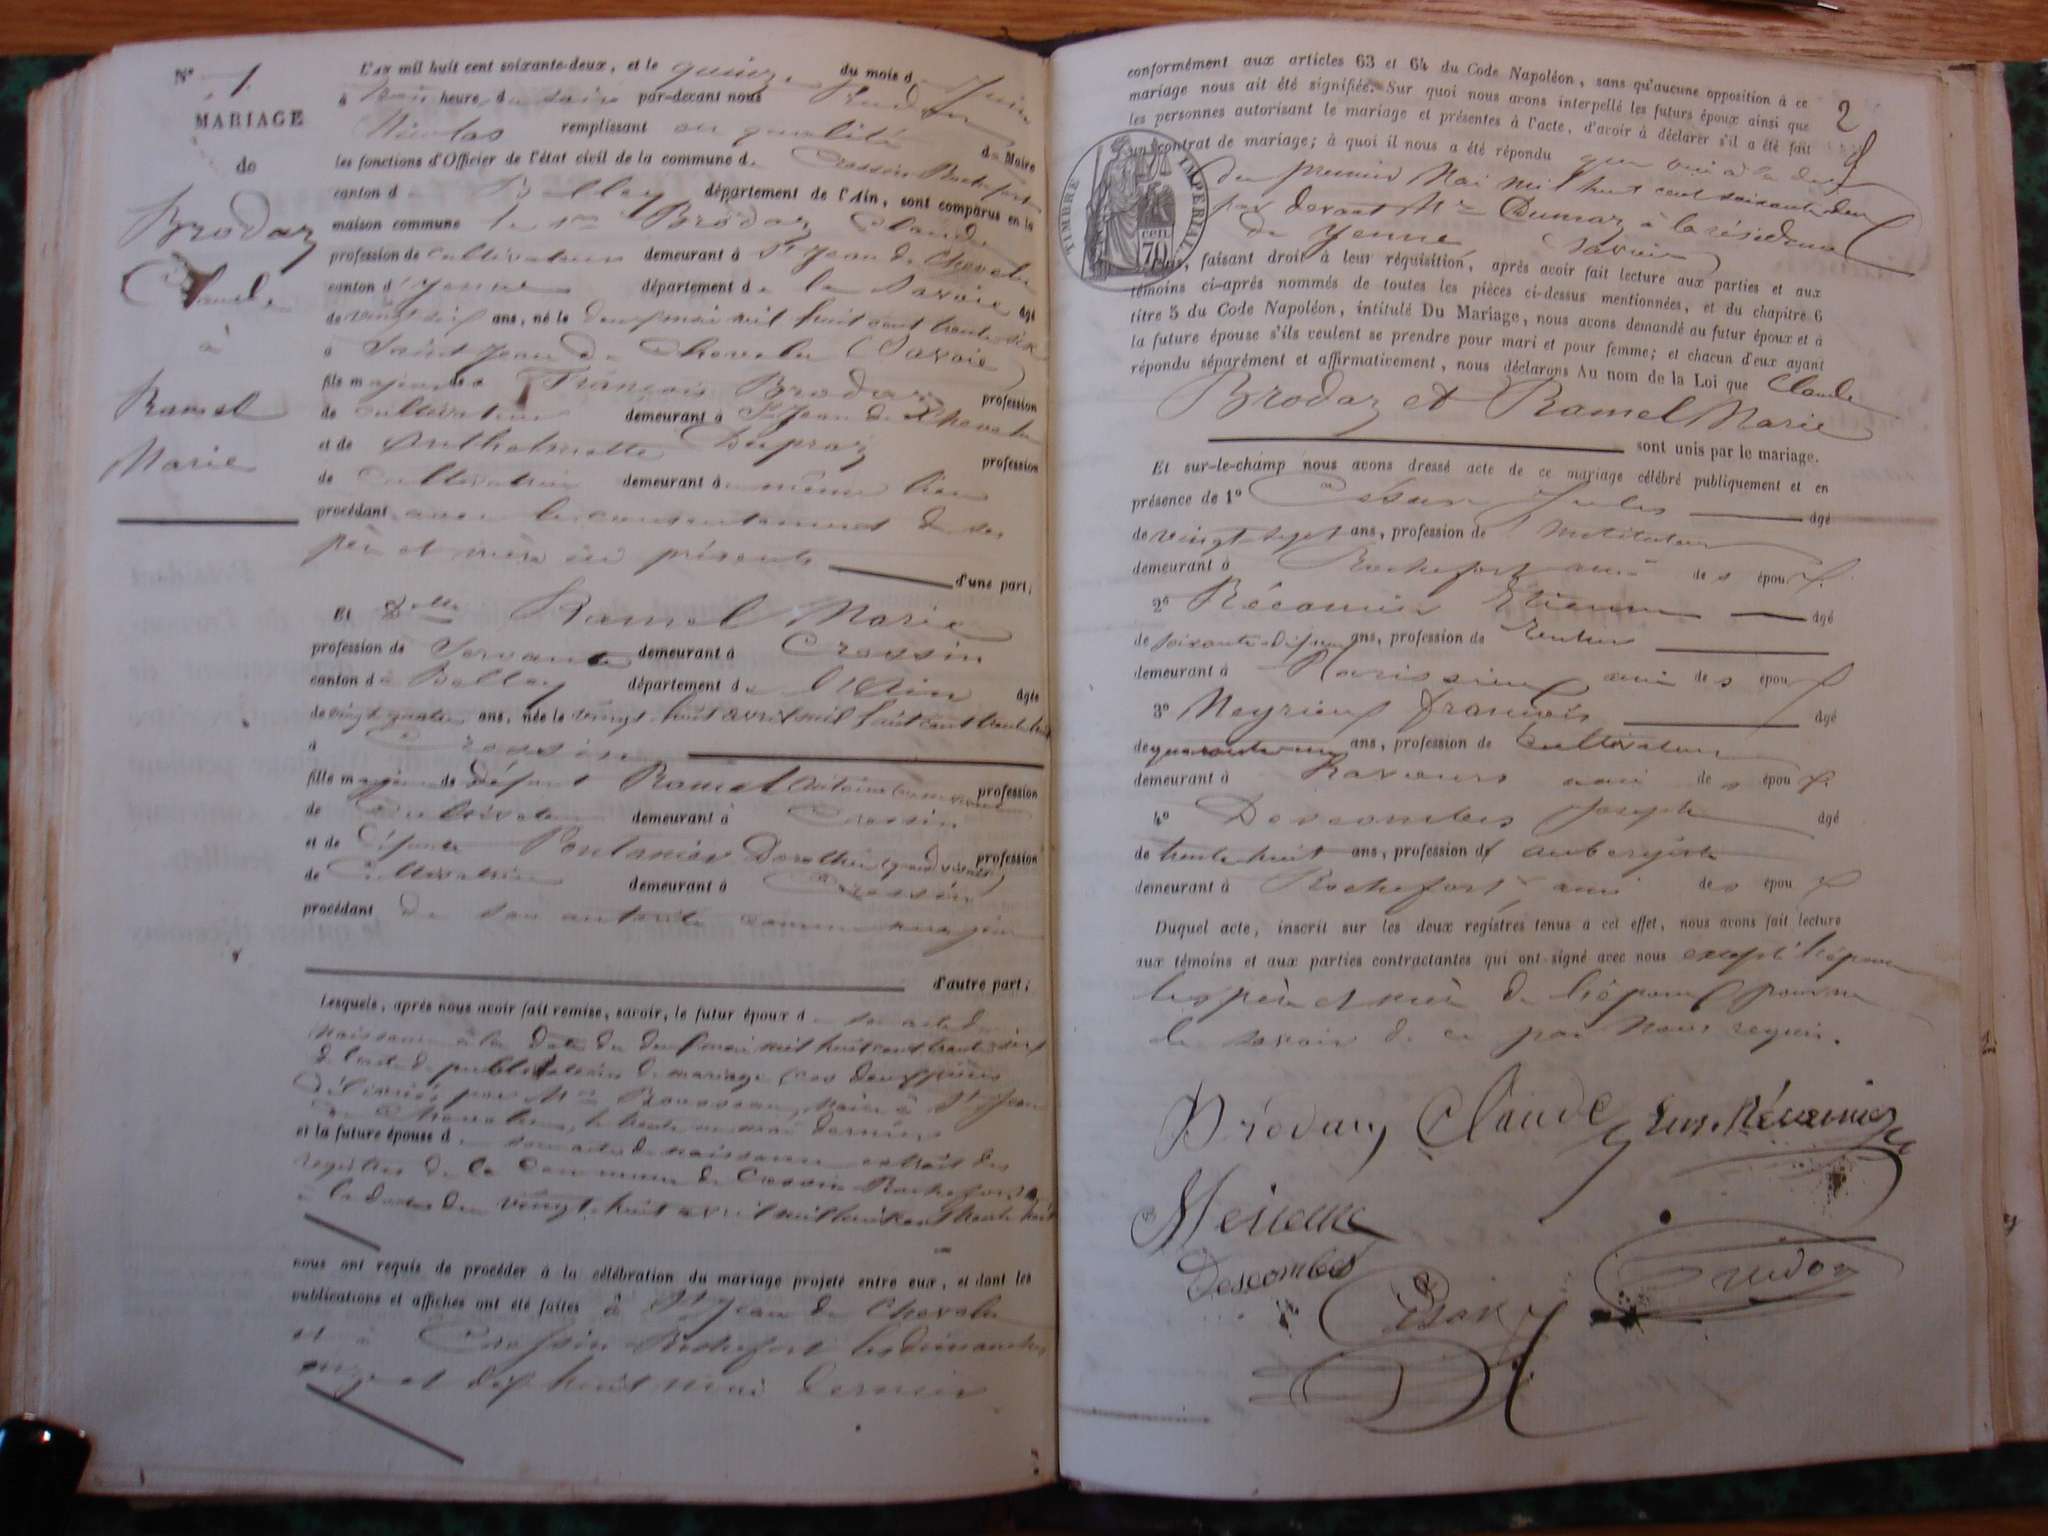 N° 1
MARIAGE
de
Brodaz
Claude
à
Ramel
Marie
L'an mil huit cent soixante-deux, et le quinze du mois de Juin
à trois heures du soir par-devant nous
Nicolas remplissant en qualité de Maire
les fonctions d'Officier de l'état civil de la commune de Cressin Rochefort
canton de Belley département de l'Ain, sont comparus en la
maison commune le sr Brodaz Claude
profession de cultivateur demeurant à St Jean de Chevelu
canton d'Yenne département de la Savoie âgé
de vingt six ans, né le deux mai mil huit cent trente six
à Saint Jean de Chevelu (Savoie)
fils majeur de François Brodaz profession
de cultivateur demeurant à St Jean de Chevelu
et de Anthelmette Dupraz profession
de cultivatrice demeurant au même lieu
procédant avec le consentement de ses
père et mère ici présents d'une part;
Et Delle Ramel Marie
profession de Servante demeurant à Cressin
canton de Belley département de l'Ain âgée
de vingt quatre ans, née le vingt huit avril mil huit cent trente huit
à Cressin
fille majeure de défunt Ramel Antoine profession
de Cultivateur demeurant à Cressin
et de défunte Pontanier Dorothée profession
de Cultivatrice demeurant à Cressin
procédant de son autorité comme majeure
d'autre part;
Lesquels, après nous avoir fait remise, savoir, le futur époux de son acte de
naissance à la date du deux mai mil huit cent trente six
de l'acte de publication de mariage ces deux pièces
délivrées par Mr Rousseau, Maire à St Jean
de Chevelu, le trente un mai dernier
et la future épouse de son acte de naissance extrait des
registres de la Commune de Cressin Rochefort
à la date du vingt huit avril mil huit cent trente huit
nous ont requis de procéder à la célébration du mariage projeté entre eux, et dont les
publications et affiches ont été faites à St Jean de Chevelu
et à Cressin Rochefort les dimanches
onze et dix huit mai dernier
2
conformément aux articles 63 et 64 du Code Napoléon, sans qu'aucune opposition à ce
mariage nous ait été signifiée. Sur quoi nous avons interpellé les futurs époux ainsi que
les personnes autorisant le mariage et présentes à l'acte, d'avoir à déclarer s'il a été fait
un contrat de mariage; à quoi il nous a été répondu que oui à la date
du premier Mai mil huit cent soixante deux
par devant Me Dumaz à la résidence
de Yenne Savoie
TIMBRE IMPÉRIAL
70 cen.
Nous, faisant droit à leur réquisition, après avoir fait lecture aux parties et aux
témoins ci-après nommés de toutes les pièces ci-dessus mentionnées, et du chapitre 6
titre 5 du Code Napoléon, intitulé Du Mariage, nous avons demandé au futur époux et à
la future épouse s'ils veulent se prendre pour mari et pour femme; et chacun d'eux ayant
répondu séparément et affirmativement, nous déclarons Au nom de la Loi que Claude
Brodaz et Ramel Marie
sont unis par le mariage.
Et sur-le-champ nous avons dressé acte de ce mariage célébré publiquement et en
présence de 1° Jules âgé
de vingt sept ans, profession de Instituteur
demeurant à Rochefort ami des époux
2° Récamier Etienne âgé
de ans, profession de Rentier
demeurant à ami des époux
3° Meyrieux François âgé
de quarante un ans, profession de Cultivateur
demeurant à ami des époux
4° Descombes Joseph âgé
de trente huit ans, profession d' aubergiste
demeurant à Rochefort, ami des époux
Duquel acte, inscrit sur les deux registres tenus à cet effet, nous avons fait lecture
aux témoins et aux parties contractantes qui ont signé avec nous excepté l'épouse
les père et mère de l'époux pour ne
le savoir de ce par nous requis.
Brodaz Claude Récamier
Descombes